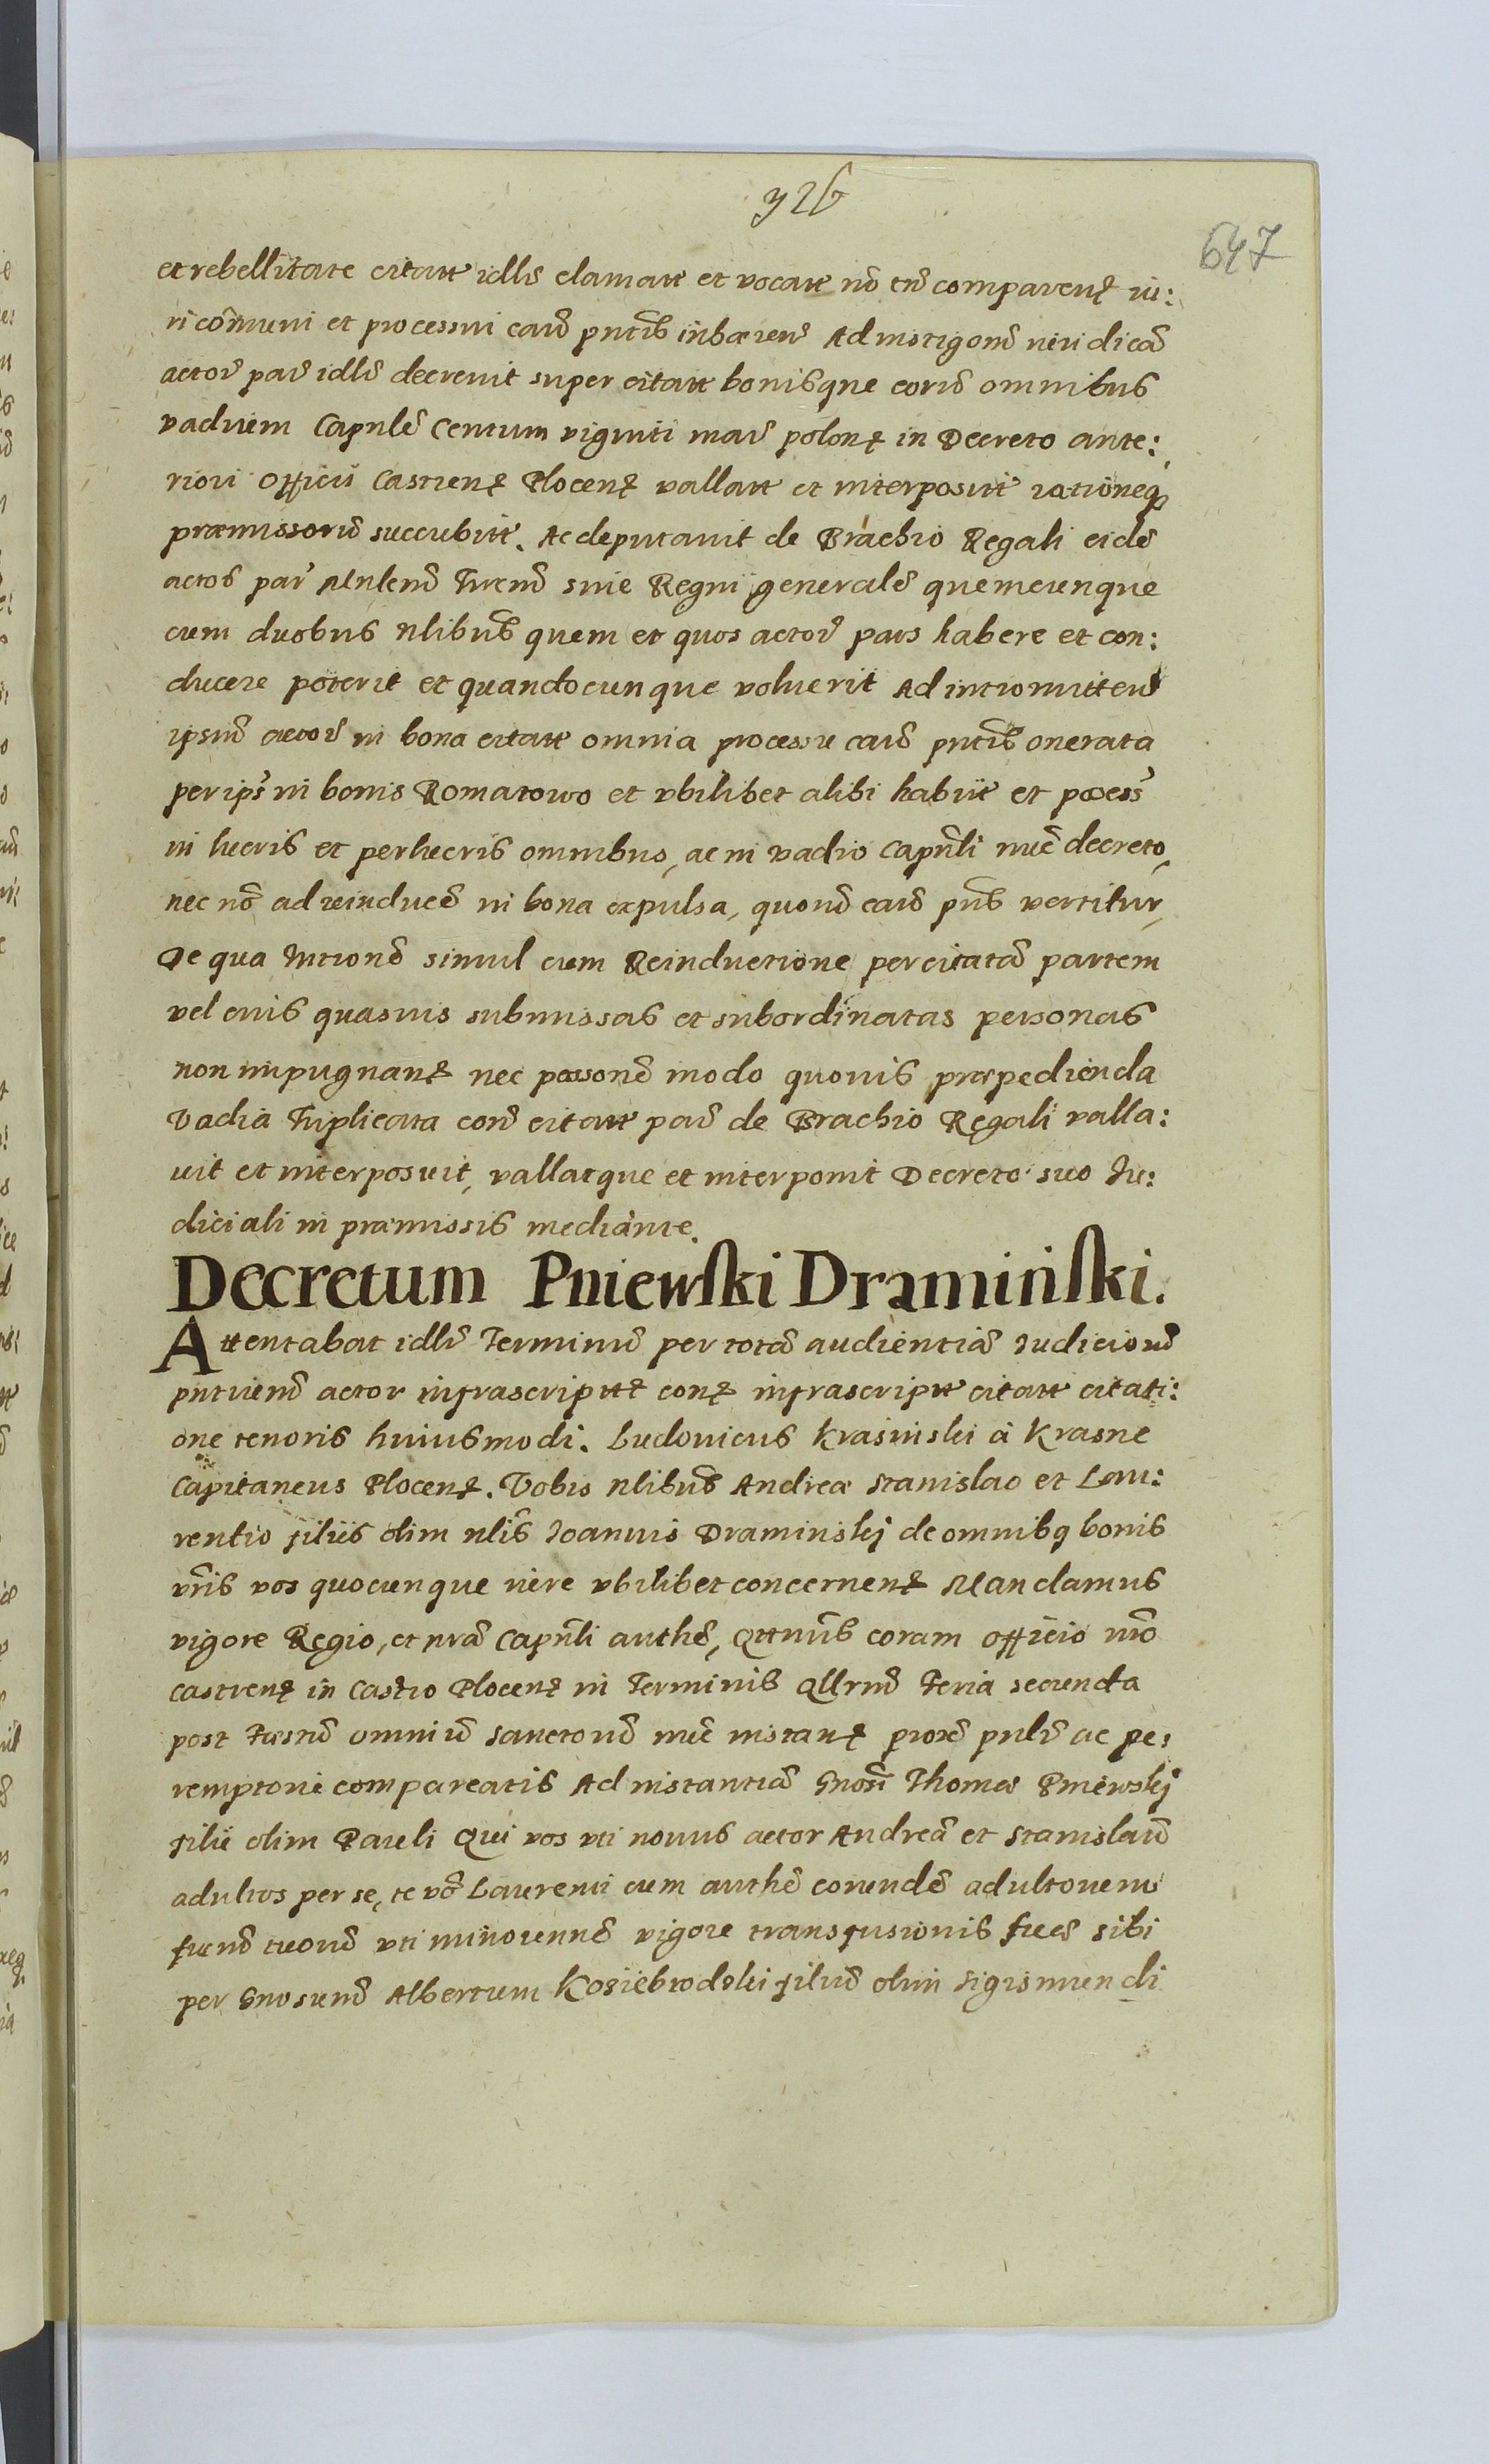 326
647
et rebellitate citatt idllr clamatt et vocatt nō tn comparent̃ iu:
ri cōmuni et processui causā pntib inhaeren Ad instigonē viridicā
actor par idllr decrevit super citatt bonisque eorū omnibus
vadium Capnlē Centum viginti mar polont̃ in Decreto ante:
riori Officii Castrent̃ Plocent̃ vallatt et interposuit rationeq
praemissorū succubuit. Ac deputavit de Brachio Regali eidē
actos par Mnlem Trem sive Regni generalē quemcunque
cum duobus nlibus quem et quos actor pars habere et con:
ducere poterit et quandocunque voluerit Ad intromitten
ipsum actor in bona citatt omnia processu causā pntib onerata
per ips in bonis Romatowo et vbilibet alibi habit et possess
in lucris et perlucris omnibus, ac in vadio Capnli nuc decreto,
nec nō ad reinducē in bona expulsa, quonō causā pns vertitur,
De qua Intronē simul cum Reinductione per citatā partem
vel eius quasvis submissas et subordinatas personas
non impugnant̃ nec possonē modo quovis praepedienda
Vadia Triplicata con citatt par de Brachio Regali valla:
vit et interposuit, vallatque et interponit Decreto suo Iu:
diciali in praemissis mediante.
Decretum Pniewski Dramiński.
Attentabat idllr Terminū per totā audientiā Iudiciorū
pntiem actor infrascriptt cont̃ infrascriptt citatt citati:
one tenoris huiusmodi. Ludovicus Krasinski à Krasne
Capitaneus Plocent̃. Vobis nlibus Andreae Stanislao et Lau:
rentio filiis olim nlis Joannis Draminskj de omnibq bonis
vris vos quocunque iure vbilibet concernent̃ Mandamus
vigore Regio, et nrā Capnli authē, Qttnus coram officio nro
castrent̃ in Castro Plocent̃ in Terminis Qllrum Feria secunda
post Faestū omniū Sanctorū nuc instant̃ proxē pnlr ac pe:
remptorie compareatis Ad instantiā Gnosi Thomae Pniewskj
filii olim Pauli Qui vos vti novus actor Andreā et Stanislaū
adultos per se, te vō Laurenti cum authē corundē adultorum
frum tuorū vti minorennē vigore transfusionis fuēs sibi
per Gnosum Albertum Kosiebrodski filiū olim Sigismundi